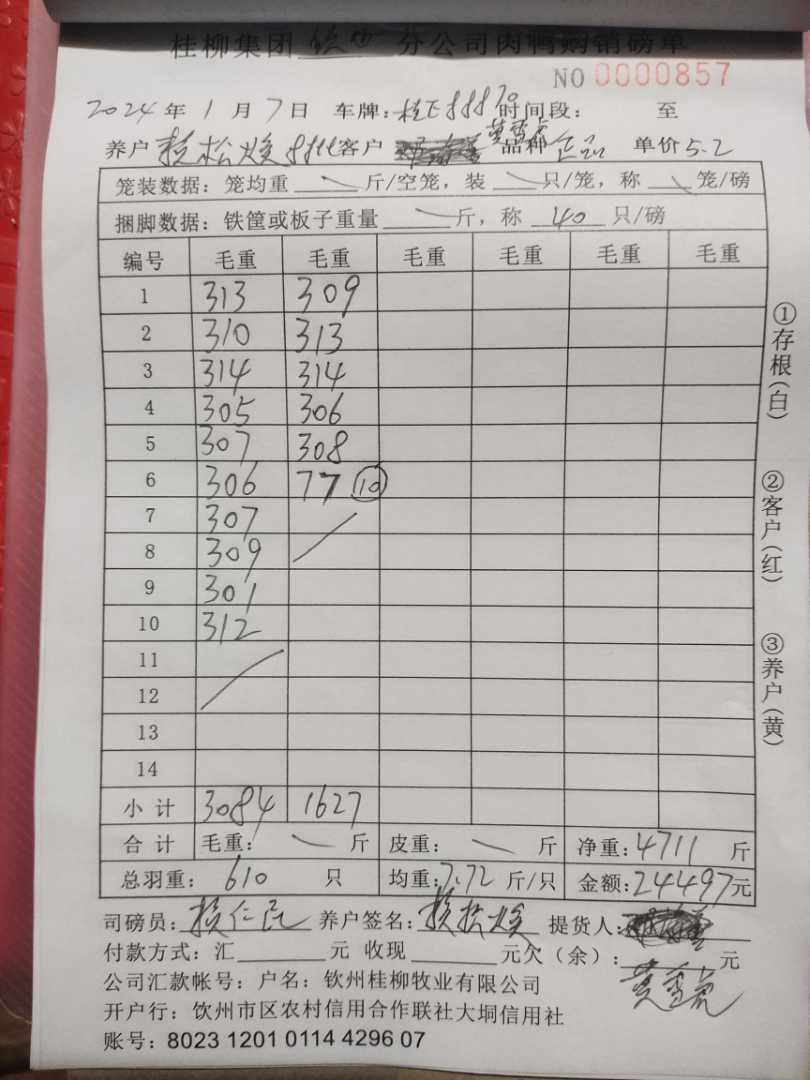 桂柳集团 钦州 分公司肉鸭购销磅单
NO 0000857
2024年1月7日 车牌:桂E88870 时间段: 至
养户 松焕 客户 品称 正品 单价5.2
笼装数据:笼均重 斤/空笼,装 只/笼,称 笼/磅
捆脚数据:铁筐或板子重量 斤,称 40 只/磅
编号 毛重 毛重 毛重 毛重 毛重 毛重
1 313 309
2 310 313
3 314 314
4 305 306
5 307 308
6 306 77 10
7 307
8 309
9 301
10 312
11
12
13
14
小计 3084 1627
合计 毛重: 斤 皮重: 斤 净重:4711 斤
总羽重:610 只 均重:7.72 斤/只 金额:24497元
司磅员: 仁民 养户签名: 松焕 提货人:
付款方式:汇 元 收现 元欠(余): 元
公司汇款帐号:户名:钦州桂柳牧业有限公司
开户行:钦州市区农村信用合作联社大垌信用社
账号:8023 1201 0114 4296 07
①存根(白)
②客户(红)
③养户(黄)